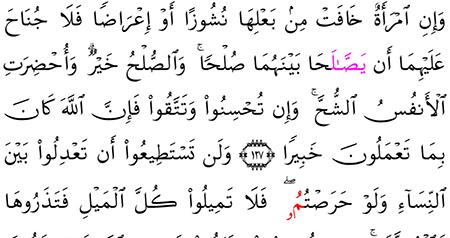 وَإِنِ ٱمْرَأَةٌ خَافَتْ مِنۢ بَعْلِهَا نُشُوزًا أَوْ إِعْرَاضًا فَلَا جُنَاحَ
عَلَيْهِمَا أَن يَصَّٰلَحَا بَيْنَهُمَا صُلْحًا ۚ وَٱلصُّلْحُ خَيْرٌ ۗ وَأُحْضِرَتِ
ٱلْأَنفُسُ ٱلشُّحَّ ۚ وَإِن تُحْسِنُوا۟ وَتَتَّقُوا۟ فَإِنَّ ٱللَّهَ كَانَ
بِمَا تَعْمَلُونَ خَبِيرًا ١٢٧ وَلَن تَسْتَطِيعُوٓا۟ أَن تَعْدِلُوا۟ بَيْنَ
ٱلنِّسَآءِ وَلَوْ حَرَصْتُمُۥ ۖ فَلَا تَمِيلُوا۟ كُلَّ ٱلْمَيْلِ فَتَذَرُوهَا